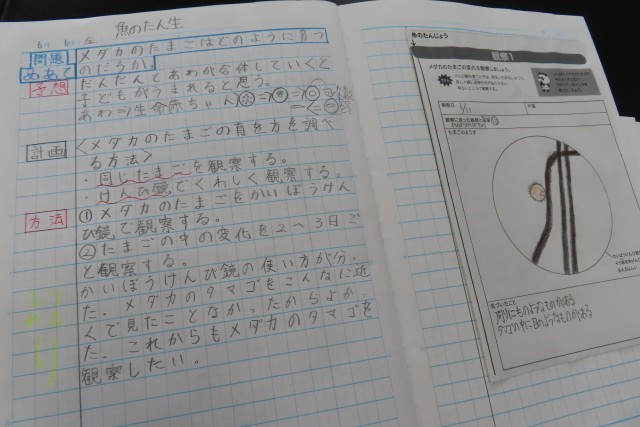 魚のたん生
問題
メダカのたまごはどのように育つ
のだろうか。
めあて
予想
だんだんとあわが合体していくと
子どもがうまれると思う。
あわ⇒生命赤ちゃん
計画
<メダカのたまごの育ち方を調べ
る方法>
・同じたまごを観察する。
・けんび鏡でくわしく観察する。
方法
①メダカのたまごをかいぼうけん
び鏡で観察する。
②たまごの中の変化を2〜3日ご
と観察する。
かいぼうけんび鏡の使い方が分、
た。メダカのタマゴをこんなに近
くで見たことなか、たからよか、
た。これからもメダカのタマゴを
観察したい。
魚のたんじょう
観察1
メダカのたまごの変化を観察しましょう。
たまごのようす
気づいたこと
タマゴの中に目のようなものがある